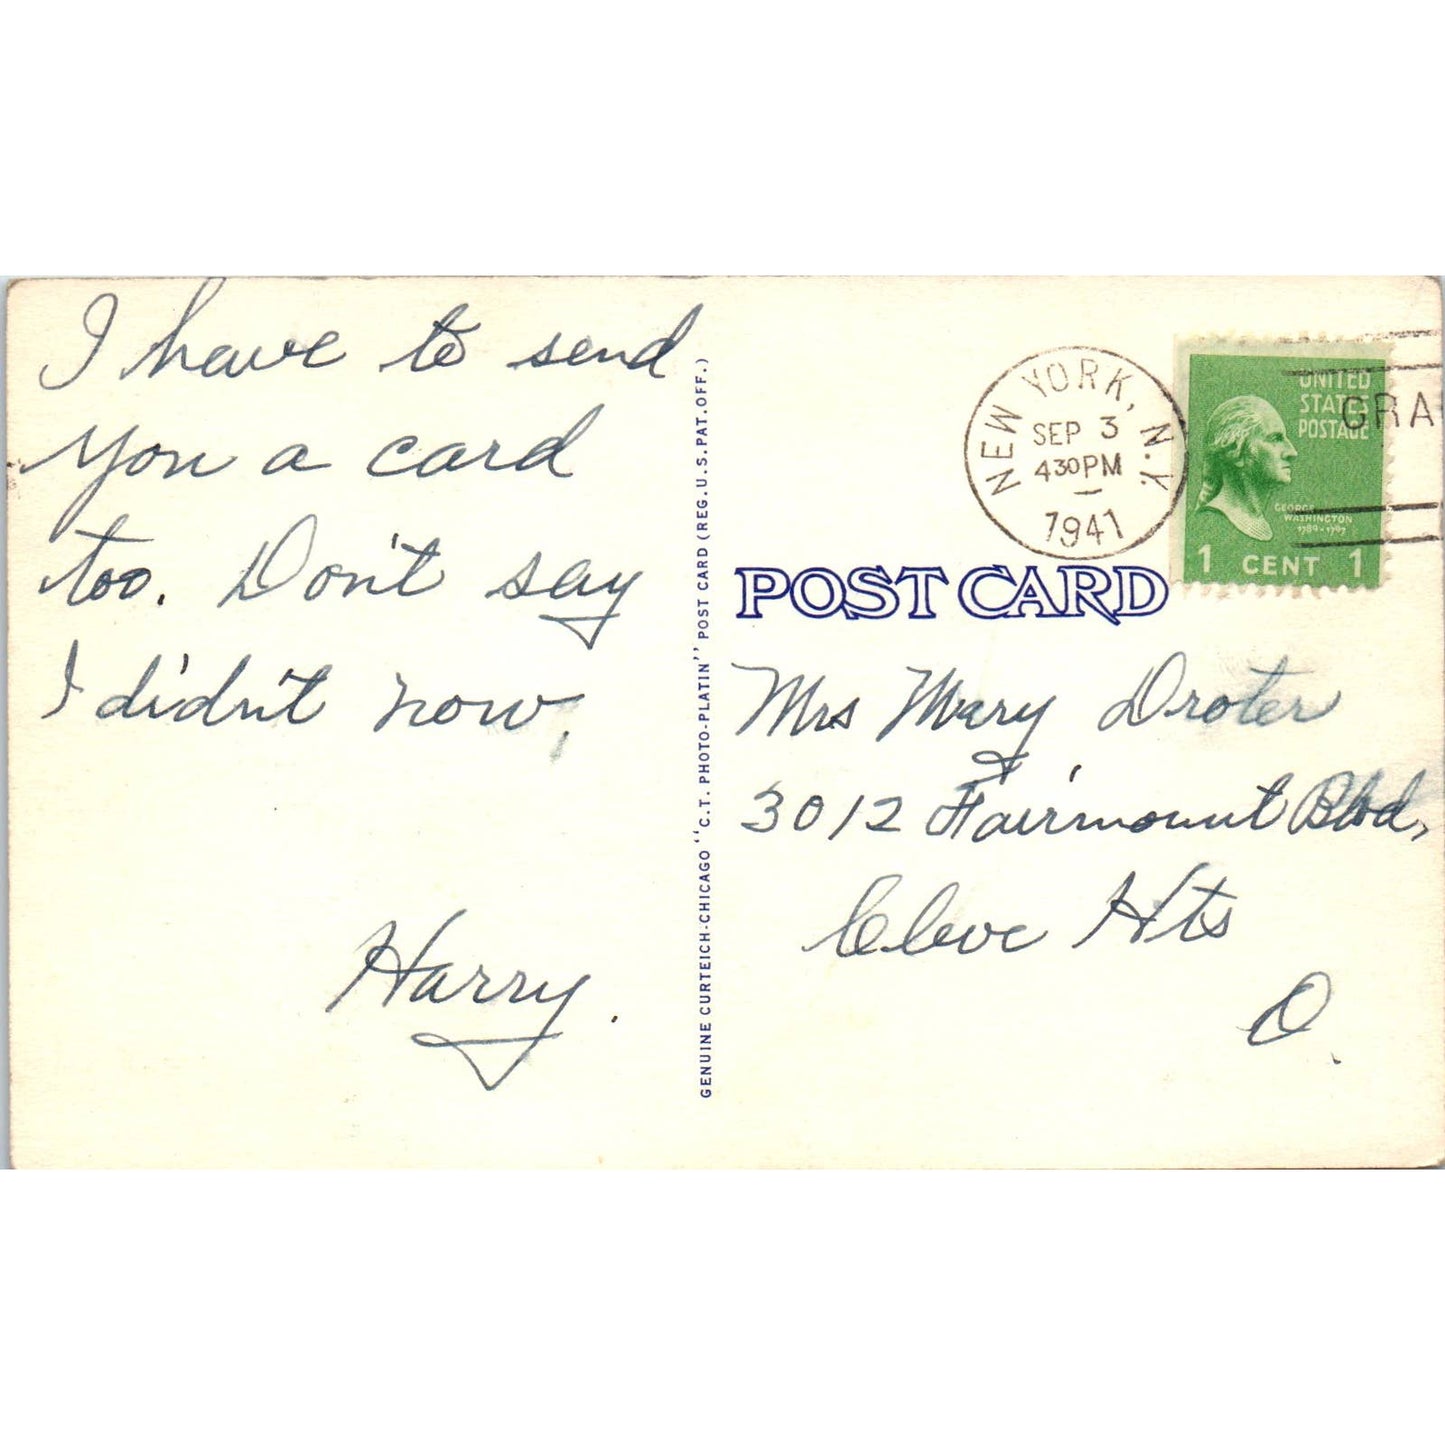 I have to send
you a card
too. Don't say
I didn't now,
Harry.
GENUINE CURTEICH-CHICAGO "C.T. PHOTO-PLATIN" POST CARD (REG. U.S. PAT. OFF.)
NEW YORK, N.Y.
SEP 3
430PM
1941
UNITED
STATES
POSTAGE
GRA
GEORGE
WASHINGTON
1789-1797
1 CENT 1
POST CARD
Mrs Mary Droter
3012 Fairmount Blvd,
Cleve Hts
O.